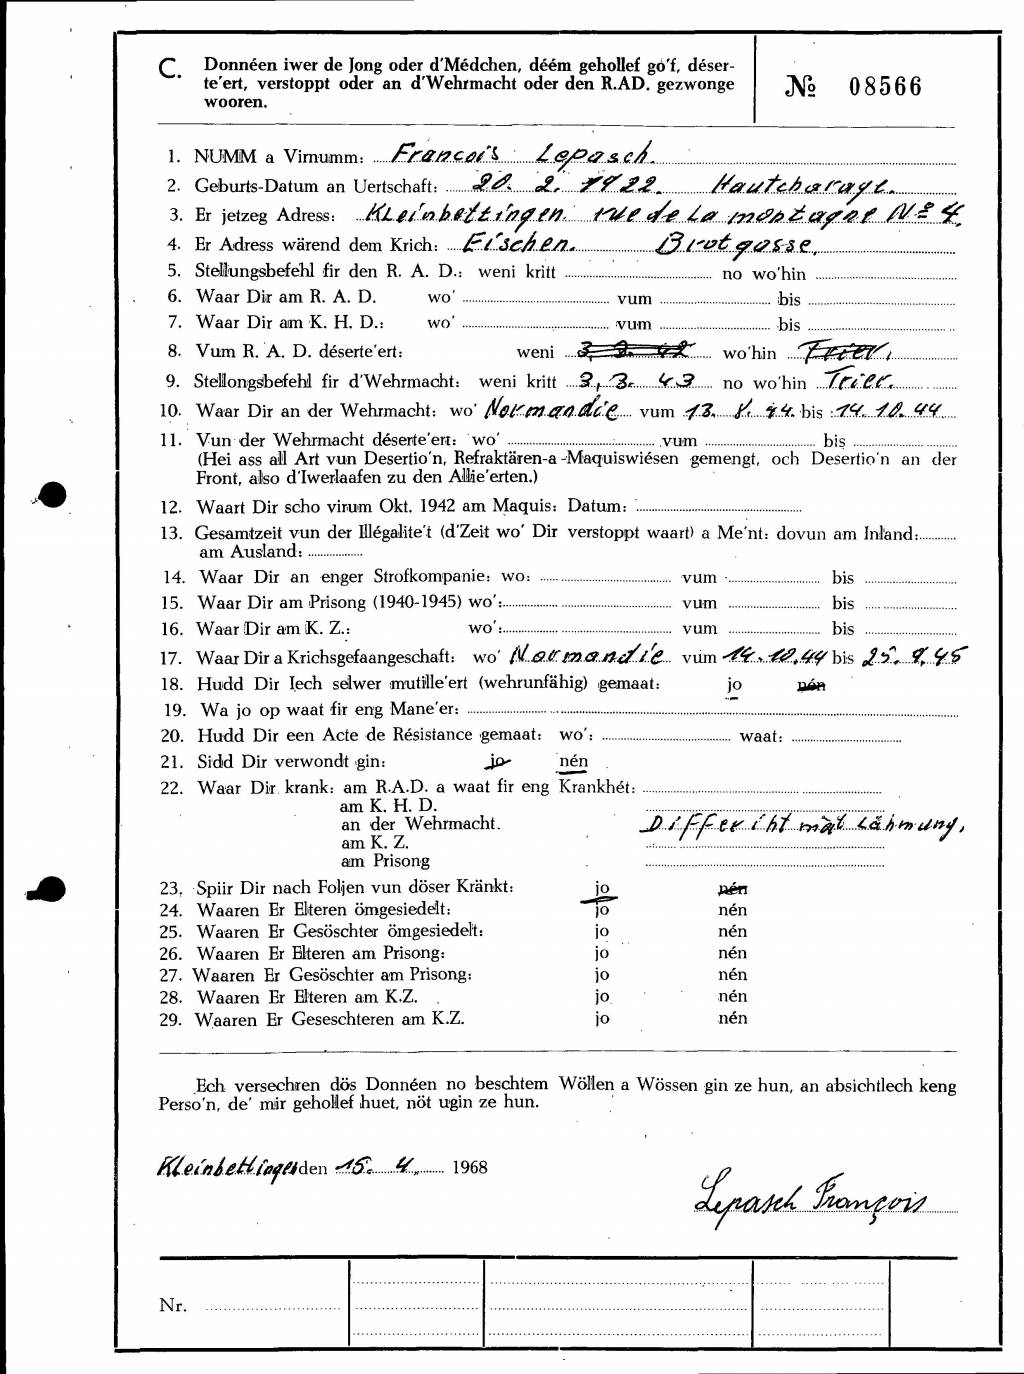 C. Donnéen iwer de Jong oder d'Médchen, déém gehollef go'f, déser-
te'ert, verstoppt oder an d'Wehrmacht oder den R.AD. gezwonge
wooren.
№ 08566
1. NUMM a Virnumm: Francois Lepasch.
2. Geburts-Datum an Uertschaft: 20. 2. 1922. Hautcharage.
3. Er jetzeg Adress: Kleinbettingen. rue de La montagne Nº 4.
4. Er Adress wärend dem Krich: Eischen. Brotgasse.
5. Stellungsbefehl fir den R. A. D.: weni kritt no wo'hin
6. Waar Dir am R. A. D. wo' vum bis
7. Waar Dir am K. H. D.: wo' vum bis
8. Vum R. A. D. déserte'ert: weni 3. 3. 42 wo'hin Trier.
9. Stellongsbefehl fir d'Wehrmacht: weni kritt 3. 3. 43 no wo'hin Trier.
10. Waar Dir an der Wehrmacht: wo' Normandie vum 13. 8. 44. bis 14. 10. 44
11. Vun der Wehrmacht déserte'ert: wo' vum bis
(Hei ass all Art vun Desertio'n, Refraktären-a-Maquiswiésen gemengt, och Desertio'n an der
Front, also d'Iwerlaafen zu den Allie'erten.)
12. Waart Dir scho virum Okt. 1942 am Maquis: Datum:
13. Gesamtzeit vun der Illégalite't (d'Zeit wo' Dir verstoppt waart) a Me'nt: dovun am Inland:
am Ausland:
14. Waar Dir an enger Strofkompanie: wo: vum bis
15. Waar Dir am Prisong (1940-1945) wo': vum bis
16. Waar Dir am K. Z.: wo': vum bis
17. Waar Dir a Krichsgefaangeschaft: wo' Normandie vum 14. 10. 44 bis 25. 9. 45
18. Hudd Dir Iech selwer mutille'ert (wehrunfähig) gemaat: jo nén
19. Wa jo op waat fir eng Mane'er:
20. Hudd Dir een Acte de Résistance gemaat: wo': waat:
21. Sidd Dir verwondt gin: jo nén
22. Waar Dir krank: am R.A.D. a waat fir eng Krankhét:
am K. H. D.
an der Wehrmacht. Differiht mat Lähmung.
am K. Z.
am Prisong
23. Spiir Dir nach Foljen vun döser Kränkt: jo nén
24. Waaren Er Elteren ömgesiedelt: jo nén
25. Waaren Er Gesöschter ömgesiedelt: jo nén
26. Waaren Er Elteren am Prisong: jo nén
27. Waaren Er Gesöschter am Prisong: jo nén
28. Waaren Er Elteren am K.Z. jo nén
29. Waaren Er Geseschteren am K.Z. jo nén
Ech versechren dös Donnéen no beschtem Wöllen a Wössen gin ze hun, an absichtlech keng
Perso'n, de' mir gehollef huet, nöt ugin ze hun.
Kleinbettingen den 15. 4. 1968
Lepasch François
Nr.